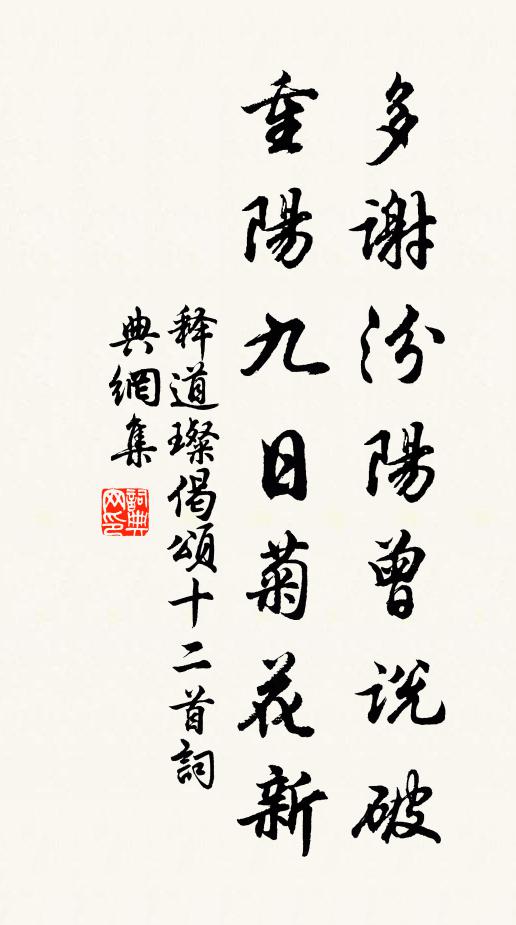 多謝汾陽曾説破
重陽九日菊花新
释道璨偈頌十二首詞
典網集
詞典
网印